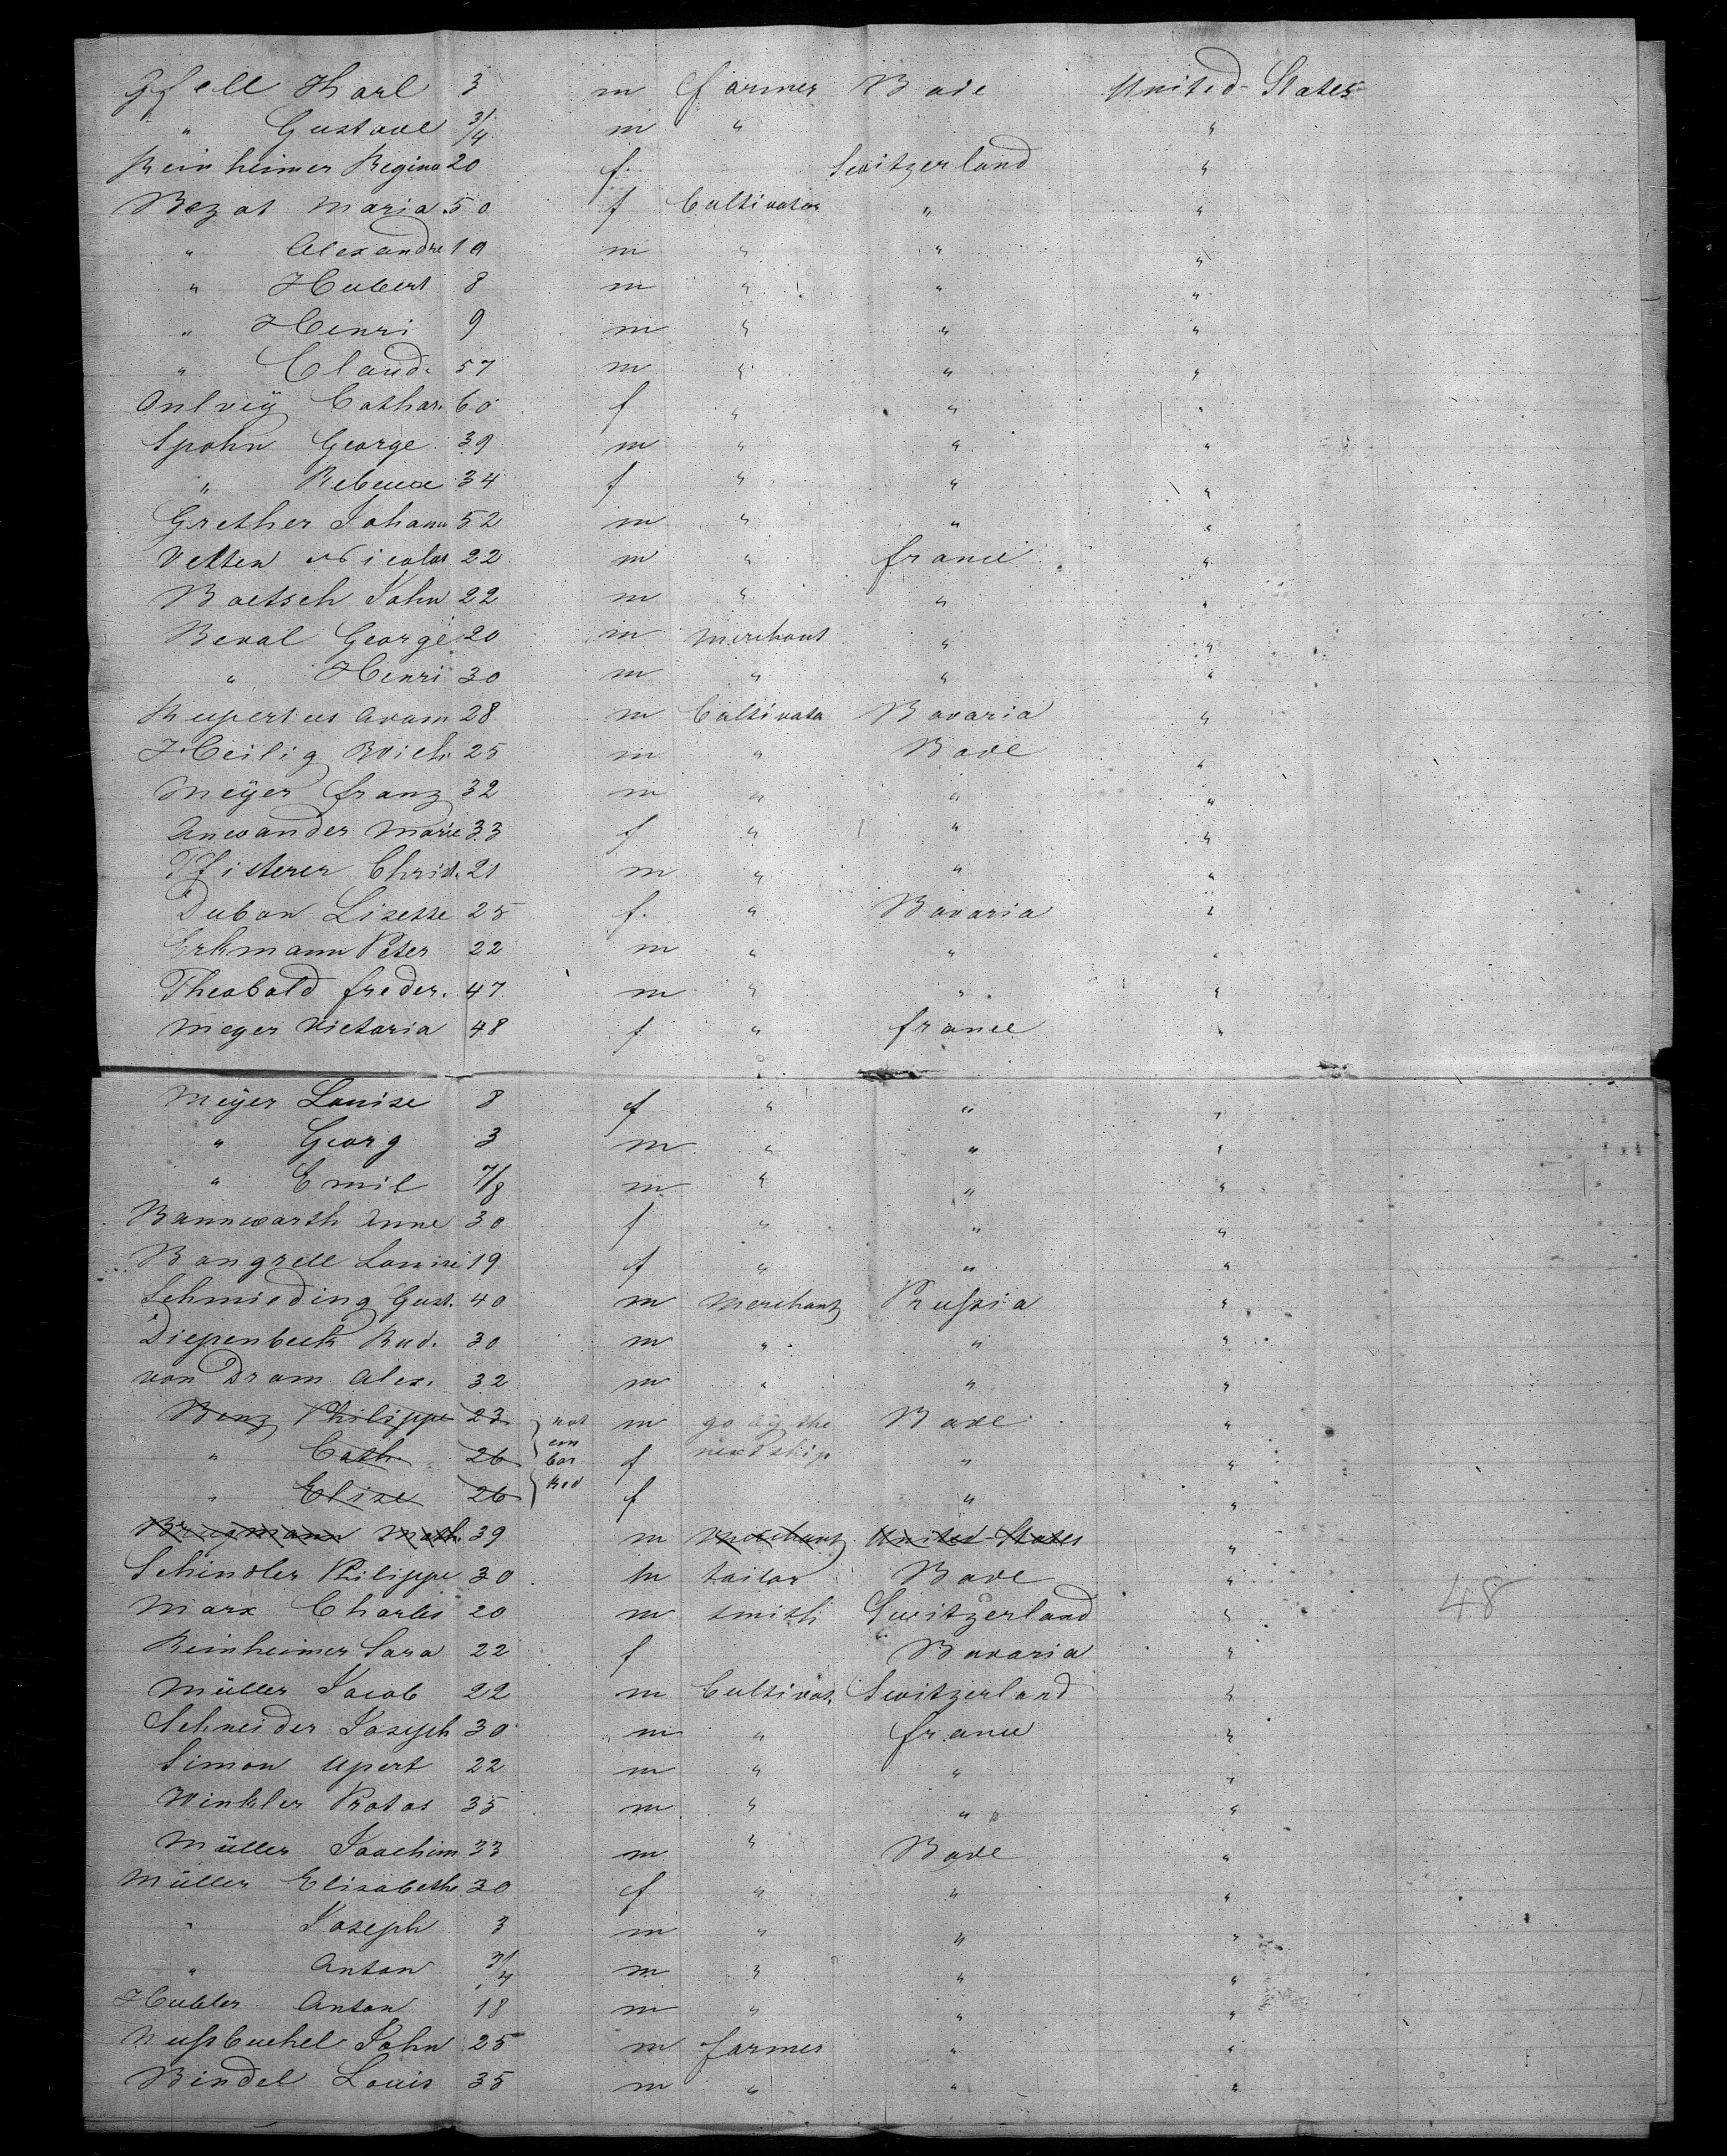 Gfell Karl 3 m farmer Bade United States
" Gustave 3/4 m " "
Reinheimer Regina 20 f. Switzerland "
Bezat Maria 50 f Cultivator " "
" Alexandre 19 m " " "
" Hubert 8 m " " "
" Henri 9 m " " "
" Claud. 57 m " " "
Cathar. 60 f " " "
Spohn George 39 m " " "
" 34 f " " "
Grether Johann 52 m " " "
Velten Nicolas 22 m " france "
Boetsch John 22 m " " "
Beval George 20 m Merchant " "
" Henri 30 m " " "
Rupertus Adam 28 m Cultivato Bavaria "
Heilig 25 m " Bade "
Meÿer franz 32 m " " "
Anwander Marie 33 f " " "
Pfisterer Christ. 21 m " " "
Dubon Lisette 25 f. " Bavaria "
Erkmann Peter 22 m " " "
Theobold freder. 47 m " " "
Meyer Victoria 48 f " france "
Meÿer Louise 8 f " " "
" Georg 3 m " " "
" Emil 7/8 m " " "
Bannwarth Anne 30 f " " "
Bangrell Louise 19 f " " "
Schmieding Gust. 40 m Merchant Prussia "
Diepenbeck Rud. 30 m " " "
von Dram Alex. 32 m " " "
Benz Philippe 23 not m go by the Bade "
" Cath. 26 em bar f next ship " "
" Elise 26 ked f " "
Brugmann Math. 39 m Merchant United States "
Schindler Philippe 30 m tailor Bade "
Marx Charles 20 m smith Switzerland " 48
Reinheimer Sara 22 f Bavaria "
Müller Jacob 22 m Cultivat. Switzerland "
Schneider Joseph 30 m " france "
Simon Upert 22 m " " "
Winkler Protas 35 m " " "
Müller Joachim 33 m " Bade "
Müller Elisabethe 30 f " " "
" Joseph 3 m " " "
" Anton 3/4 m " " "
Hubler Anton 18 m " " "
Nussbuchel John 25 m farmer " "
Bindel Louis 35 m " " "